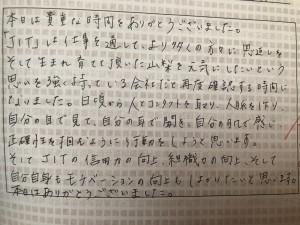 本日は貴重な時間をありがとうございました。
「JIT」は仕事を通してより多くの方々に思返しを
そして生まれ育てて頂いた山梨を元気にしたいという
思いを強く持っている会社だと再度確認する時間に
なりました。日頃から人とコンタクトを取り、人脈を作り
自分の目で見て、自分の耳で聞き、自分の肌で感じ
正確性を伺えるように行動をしようと思います。
そしてJITの信用力の向上、組織力の向上、そして
自分自身もモチベーションの向上もしよりたいと思います。
本日はありがとうございました。